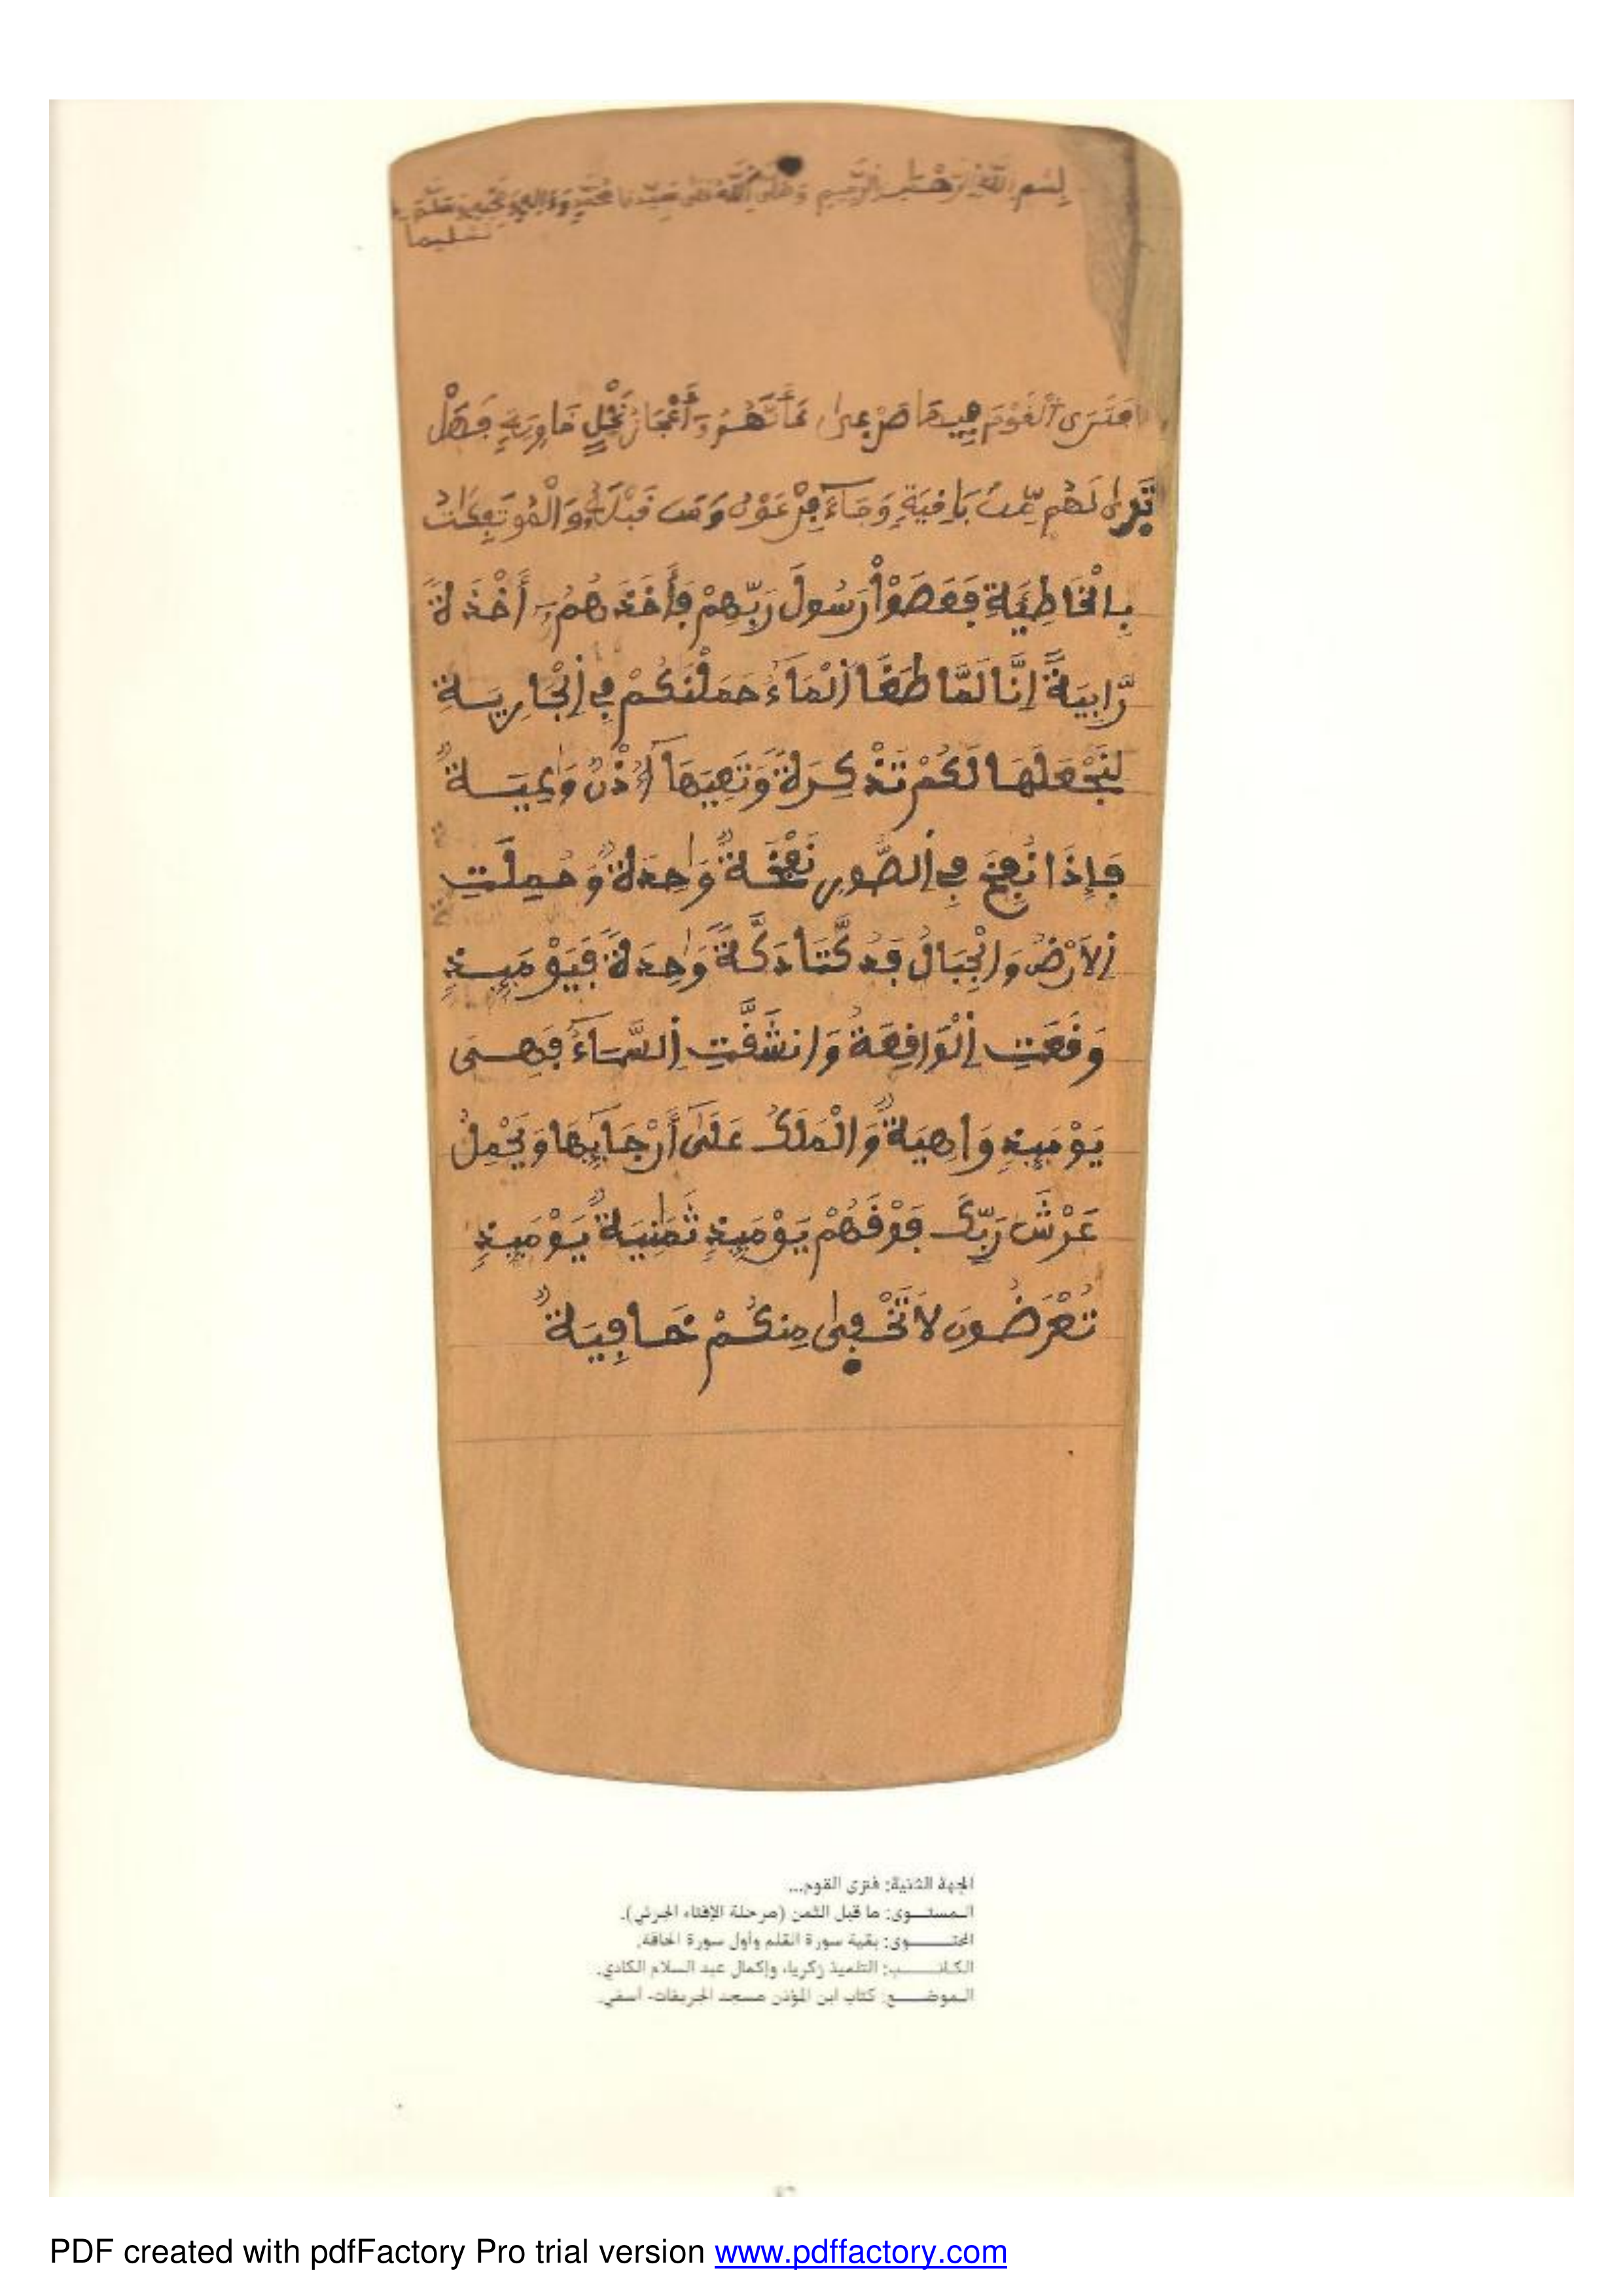 بِسْمِ اللَّهِ الرَّحْمَٰنِ الرَّحِيمِ وَصَلَّى اللَّهُ عَلَى سَيِّدِنَا مُحَمَّدٍ وَءَالِهِ وَصَحْبِهِ وَسَلَّمَ
تسليما
فَتَرَى ٱلْقَوْمَ فِيهَا صَرْعىٰ كَأَنَّهُمُۥٓ أَعْجَازُ نَخْلٍ خَاوِيَةٍ فَهَلْ
تَرىٰ لَهُم مِّنۢ بَاقِيَةٍ وَجَآءَ فِرْعَوْنُ وَمَن قَبْلَهُۥ وَالْمُوتَفِكَٰتُ
بِالْخَاطِئَةِ فَعَصَوْاْ رَسُولَ رَبِّهِمْ فَأَخَذَهُمُۥٓ أَخْذَةً
رَّابِيَةً إِنَّا لَمَّا طَغَا اَلْمَآءُ حَمَلْنَٰكُمْ فِي اِلْجَارِيَةِ
لِنَجْعَلَهَا لَكُمْ تَذْكِرَةً وَتَعِيَهَآ أُذْنٌ وَٰعِيَةٌ
فَإِذَا نُفِخَ فِي اِلصُّورِ نَفْخَةٌ وَٰحِدَةٌ وَحُمِلَتِ
اِلَارْضُ وَالْجِبَالُ فَدُكَّتَا دَكَّةً وَٰحِدَةً فَيَوْمَئِذٍ
وَقَعَتِ اِلْوَاقِعَةُ وَانشَقَّتِ اِلسَّمَآءُ فَهِىَ
يَوْمَئِذٍ وَاهِيَةٌ وَالْمَلَكُ عَلَىٰٓ أَرْجَآئِهَا وَيَحْمِلُ
عَرْشَ رَبِّكَ فَوْقَهُمْ يَوْمَئِذٍ ثَمَٰنِيَةٌ يَوْمَئِذٍ
تُعْرَضُونَ لَا تَخْفىٰ مِنكُمْ خَافِيَةٌ
الجهة الثنية: فترى القوم...
الـمستــوى: ما قبل الثمن (مرحلة الإفتاء الجزئي).
المحتــــوى: بقية سورة القلم وأول سورة الحاقة.
الكاتــــب: التلميذ زكرياء وإكمال عبد السلام الكادي.
الـموضــع: كتاب ابن المؤذن مسجد الجريفات- آسفي.
PDF created with pdfFactory Pro trial version www.pdffactory.com